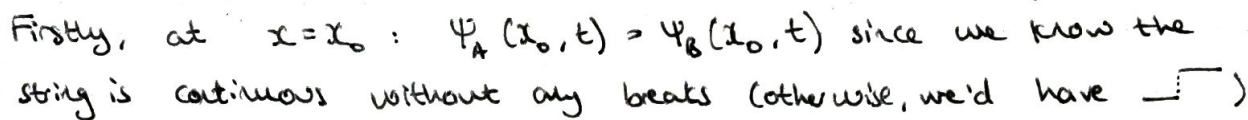 Firstly, at x = x₀ : Ψ_A (x₀, t) = Ψ_B (x₀, t) since we know the
string is continuous without any breaks (otherwise, we'd have )